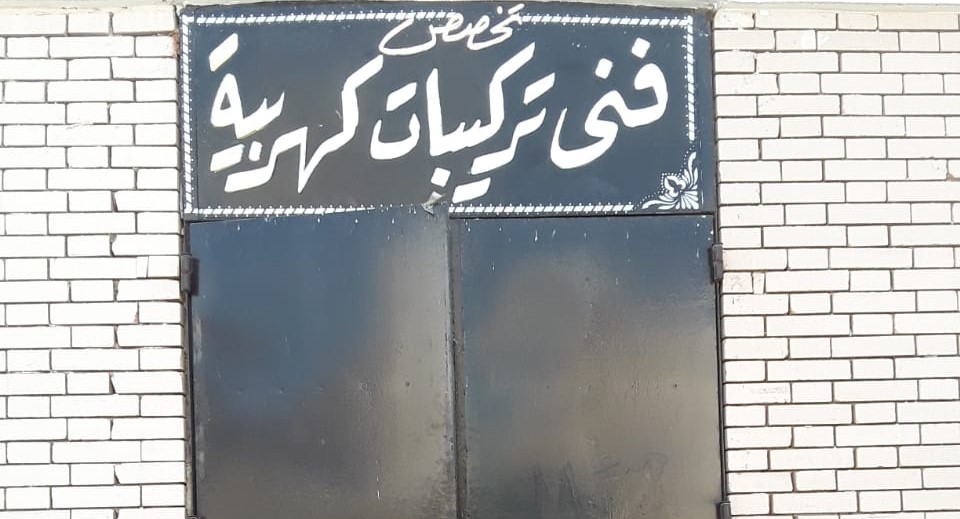 تخصص
فنى تركيبات كهربية